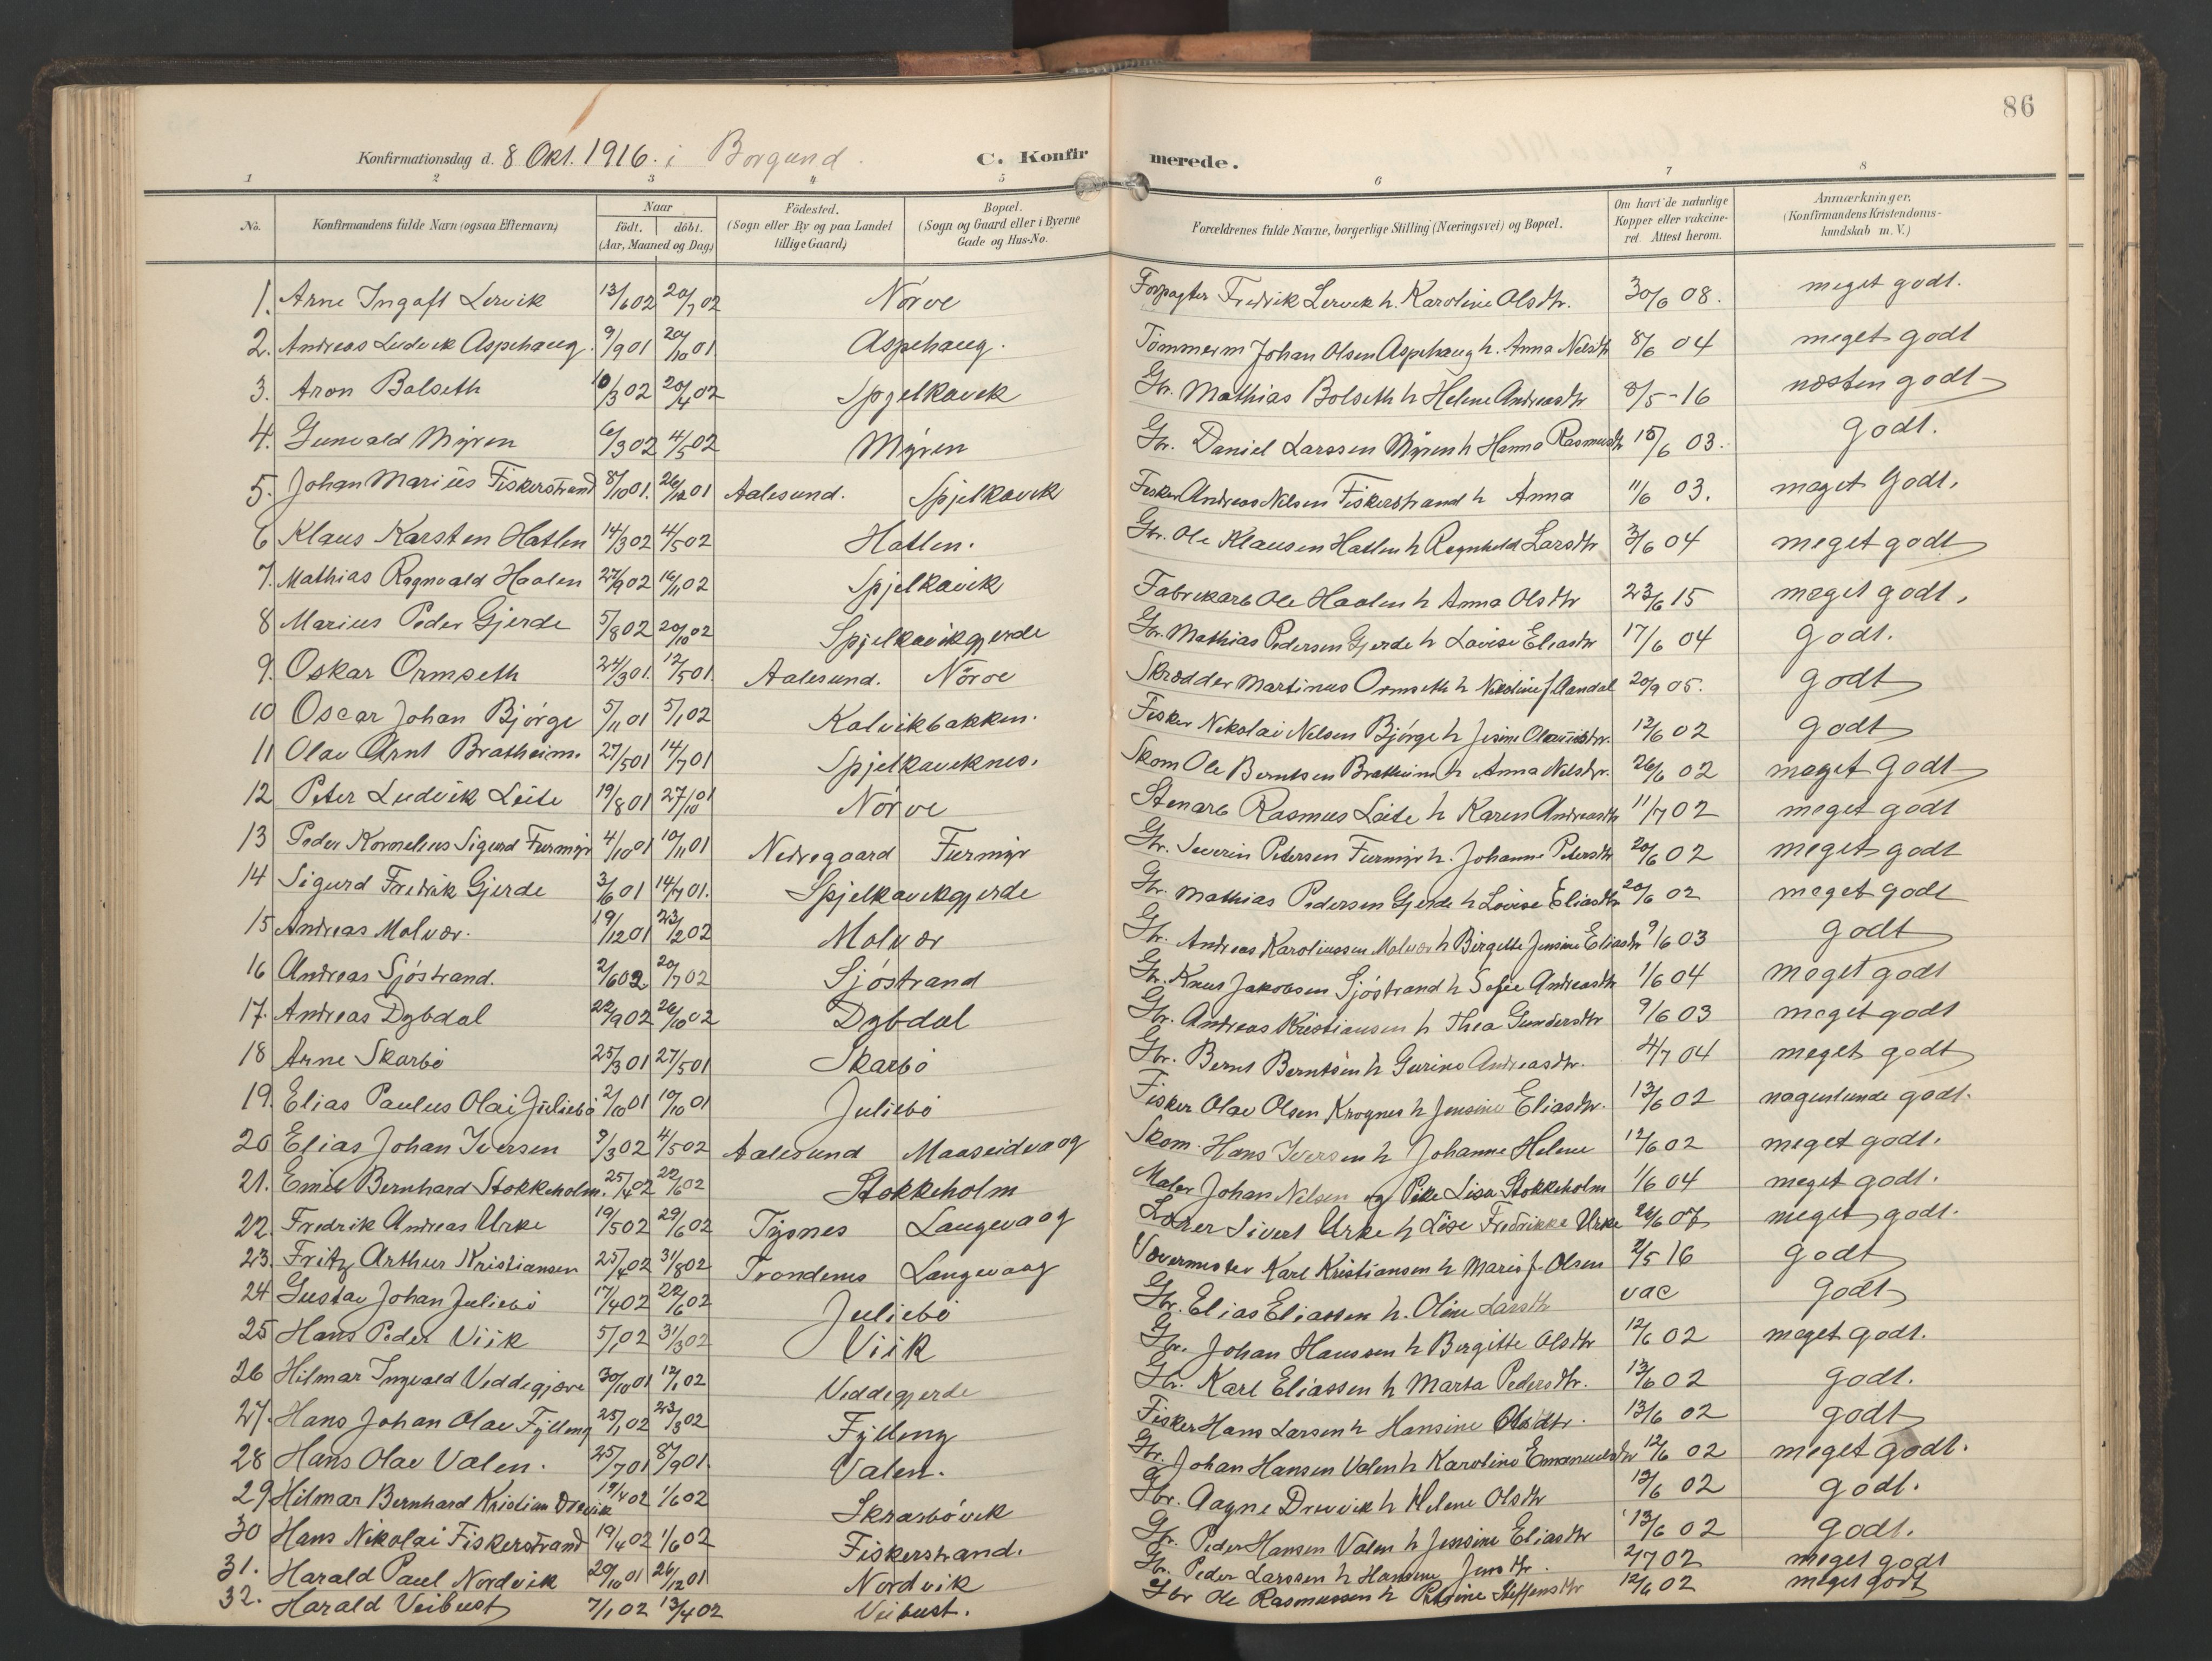 86
Konfirmationsdag d. 8 Okt. 1916. i Borgund.
C. Konfirmerede.
1 2 3 4 5 6 7 8
No. Konfirmandens fulde Navn (ogsaa Efternavn) Naar födt. döbt. (Aar, Maaned og Dag) Födested. (Sogn eller By og paa Landet tillige Gaard) Bopæl. (Sogn og Gaard eller i Byerne Gade og Hus-No. Forældrenes fulde Navne, borgerlige Stilling (Næringsvei) og Bopæl. Om havt de naturlige Kopper eller vakcineret. Attest herom. Anmærkninger. (Konfirmandens Kristendomskundskab m. V.)
1. Arne Ingolf Lervik 13/6 02 20/7 02 Nörve Forpagter Fredrik Lervik h. Karoline Olsdtr. 30/6 08. meget godt.
2. Andreas Ludvik Aspehaug. 9/9 01 20/10 01 Aspehaug. Tömmerm Johan Olsen Aspehaug h. Anna Nilsdtr 8/6 04 meget godt
3. Aron Bolseth 10/3 02 20/4 02 Spjelkavik Gbr. Mathias Bolseth h Helene Andreasdtr 8/5-16 næsten godt
4. Gunvald Myren 6/3 02 4/5 02 Myren Gbr. Daniel Larssen Myren h Hanna Rasmusdtr 15/6 03. godt.
5. Johan Marius Fiskerstrand 8/10 01. 26/12 01 Aalesund. Spjelkavik Fisker Andreas Nilsen Fiskerstrand h Anna 11/6 03. meget godt.
6 Klaus Karsten Hatlen 14/3 02 4/5 02 Hatlen. Gbr. Ole Klausen Hatlen h Ragnhild Larsdtr 3/6 04 meget godt
7. Mathias Ragnvald Haalen 27/9 02 16/11 02 Spjelkavik Fabrikarb Ole Haalen h Anna Olsdtr 23/6 15 meget godt.
8 Marius Peder Gjerde 5/8 02 20/10 02 Spjelkavikgjerde Gbr. Mathias Pedersen Gjerde h Lovise Eliasdtr 17/6 04 godt.
9. Oskar Ormseth 24/3 01. 12/5 01. Aalesund. Nörve Skrædder Martinus Ormseth h Nikoline f Aandal 20/9 05. godt
10 Oscar Johan Björge 5/11 01 5/1 02 Kalvikbakken. Fisker Nikolai Nilsen Björge h Jesine Olausdtr. 12/6 02 godt
11 Olav Arnt Bratheim. 27/5 01 14/7 01 Spjelkaviknes. Skom Ole Berntsen Bratheim h Anna Nilsdtr. 26/6 02 meget godt
12 Peter Ludvik Leite 19/8 01 27/10 01 Nörve Stenarb Rasmus Leite h Karen Andreasdtr 11/7 02 meget godt
13 Peder Kornelius Sigurd Furmyr 4/10 01 10/11 01 Nedregaard Furmyr Gbr. Severin Petersen Furmyr h. Johanne Petersdtr 20/6 02 meget godt
14 Sigurd Fredrik Gjerde 3/6 01 14/7 01. Spjelkavikgjerde Gbr. Mathias Pedersen Gjerde h Lovise Eliasdtr 20/6 02 meget godt
15 Andreas Molvær. 19/12 01 23/2 02 Molvær Gbr. Andreas Karoliussen Molvær h Birgitte Jensine Eliasdtr 9/6 03 godt
16 Andreas Sjöstrand. 2/6 02 20/7 02 Sjöstrand Gbr. Knut Jakobsen Sjöstrand h Sofie Andreasdtr 1/6 04 meget godt
17. Andreas Dybdal 22/9 02 26/10 02 Dybdal Gbr. Andreas Kristiansen h Thea Gundersdtr 9/6 03 meget godt
18 Arne Skarbö 25/3 01 27/5 01 Skarbö Gbr. Bernt Berntsen h Gurine Andreasdtr. 4/7 04 meget godt
19. Elias Paulus Olai Juliebö 2/10 01 19/10 01 Juliebö Fisker Olav Olsen Krognes h Jensine Eliasdtr. 13/6 02 nogenlunde godt.
20 Elias Johan Iversen 9/3 02 4/5 02 Aalesund Maaseidvaag Skom. Hans Iversen h Johanne Helene 12/6 02 meget godt.
21. Emil Bernhard Stokkeholm. 25/4 02 22/6 02 Stokkeholm Maler Johan Nilsen og Pike Lisa Stokkeholm 1/6 04 meget godt.
22. Fredrik Andreas Urke 19/5 02 29/6 02 Tysnes Langevaag Lærer Sivert Urke h Lise Fredrikke Urke 24/6 07 meget godt.
23. Fritz Arthur Kristiansen 25/4 02 31/8 02 Trondenes Langevaag Vævermester Karl Kristiansen h Marie f. Olsen 2/5 16 godt
24 Gustav Johan Juliebö 17/4 02 22/6 02 Juliebö Gbr. Elias Eliassen h. Oline Larsdtr vac godt
25 Hans Peder Viik 5/1 02 31/3 02 Viik Gbr. Johan Hanssen h Birgitte Olsdtr 12/6 02 meget godt.
26 Hilmar Ingvald Veddegjærde 30/10 01 12/1 02 Veddegjerde Gbr. Karl Eliassen h Marta Pedersdtr. 13/6 02 godt.
27. Hans Johan Olav Fylling 25/1 02 23/3 02 Fylling Fisker Hans Larsen h Hansine Olsdtr. 13/6 02 godt
28 Hans Olav Valen. 25/7 01 8/9 01. Valen. Gbr. Johan Hansen Valen h Karoline Emanuelsdtr 12/6 02 meget godt.
29 Hilmar Bernhard Kristian Drevik 19/4 02 1/6 02 Skrarbövik Gbr. Aagne Drevik h Helene Olsdtr 12/6 02 godt.
30 Hans Nikolai Fiskerstrand 19/4 02 1/6 02 Fiskerstrand. Gbr. Peder Hansen Valen h Jensine Eliasdtr 13/6 02 godt.
31. Harald Paul Nordvik 29/10 01 26/12 01 Nordvik Gbr. Peder Larssen h Hansine Jensdtr. 2/7 02 meget godt
32. Harald Veibust 7/1 02 13/4 02 Veibust. Gbr Ole Rasmussen h Petrine Steffensdtr 12/6 02 meget godt